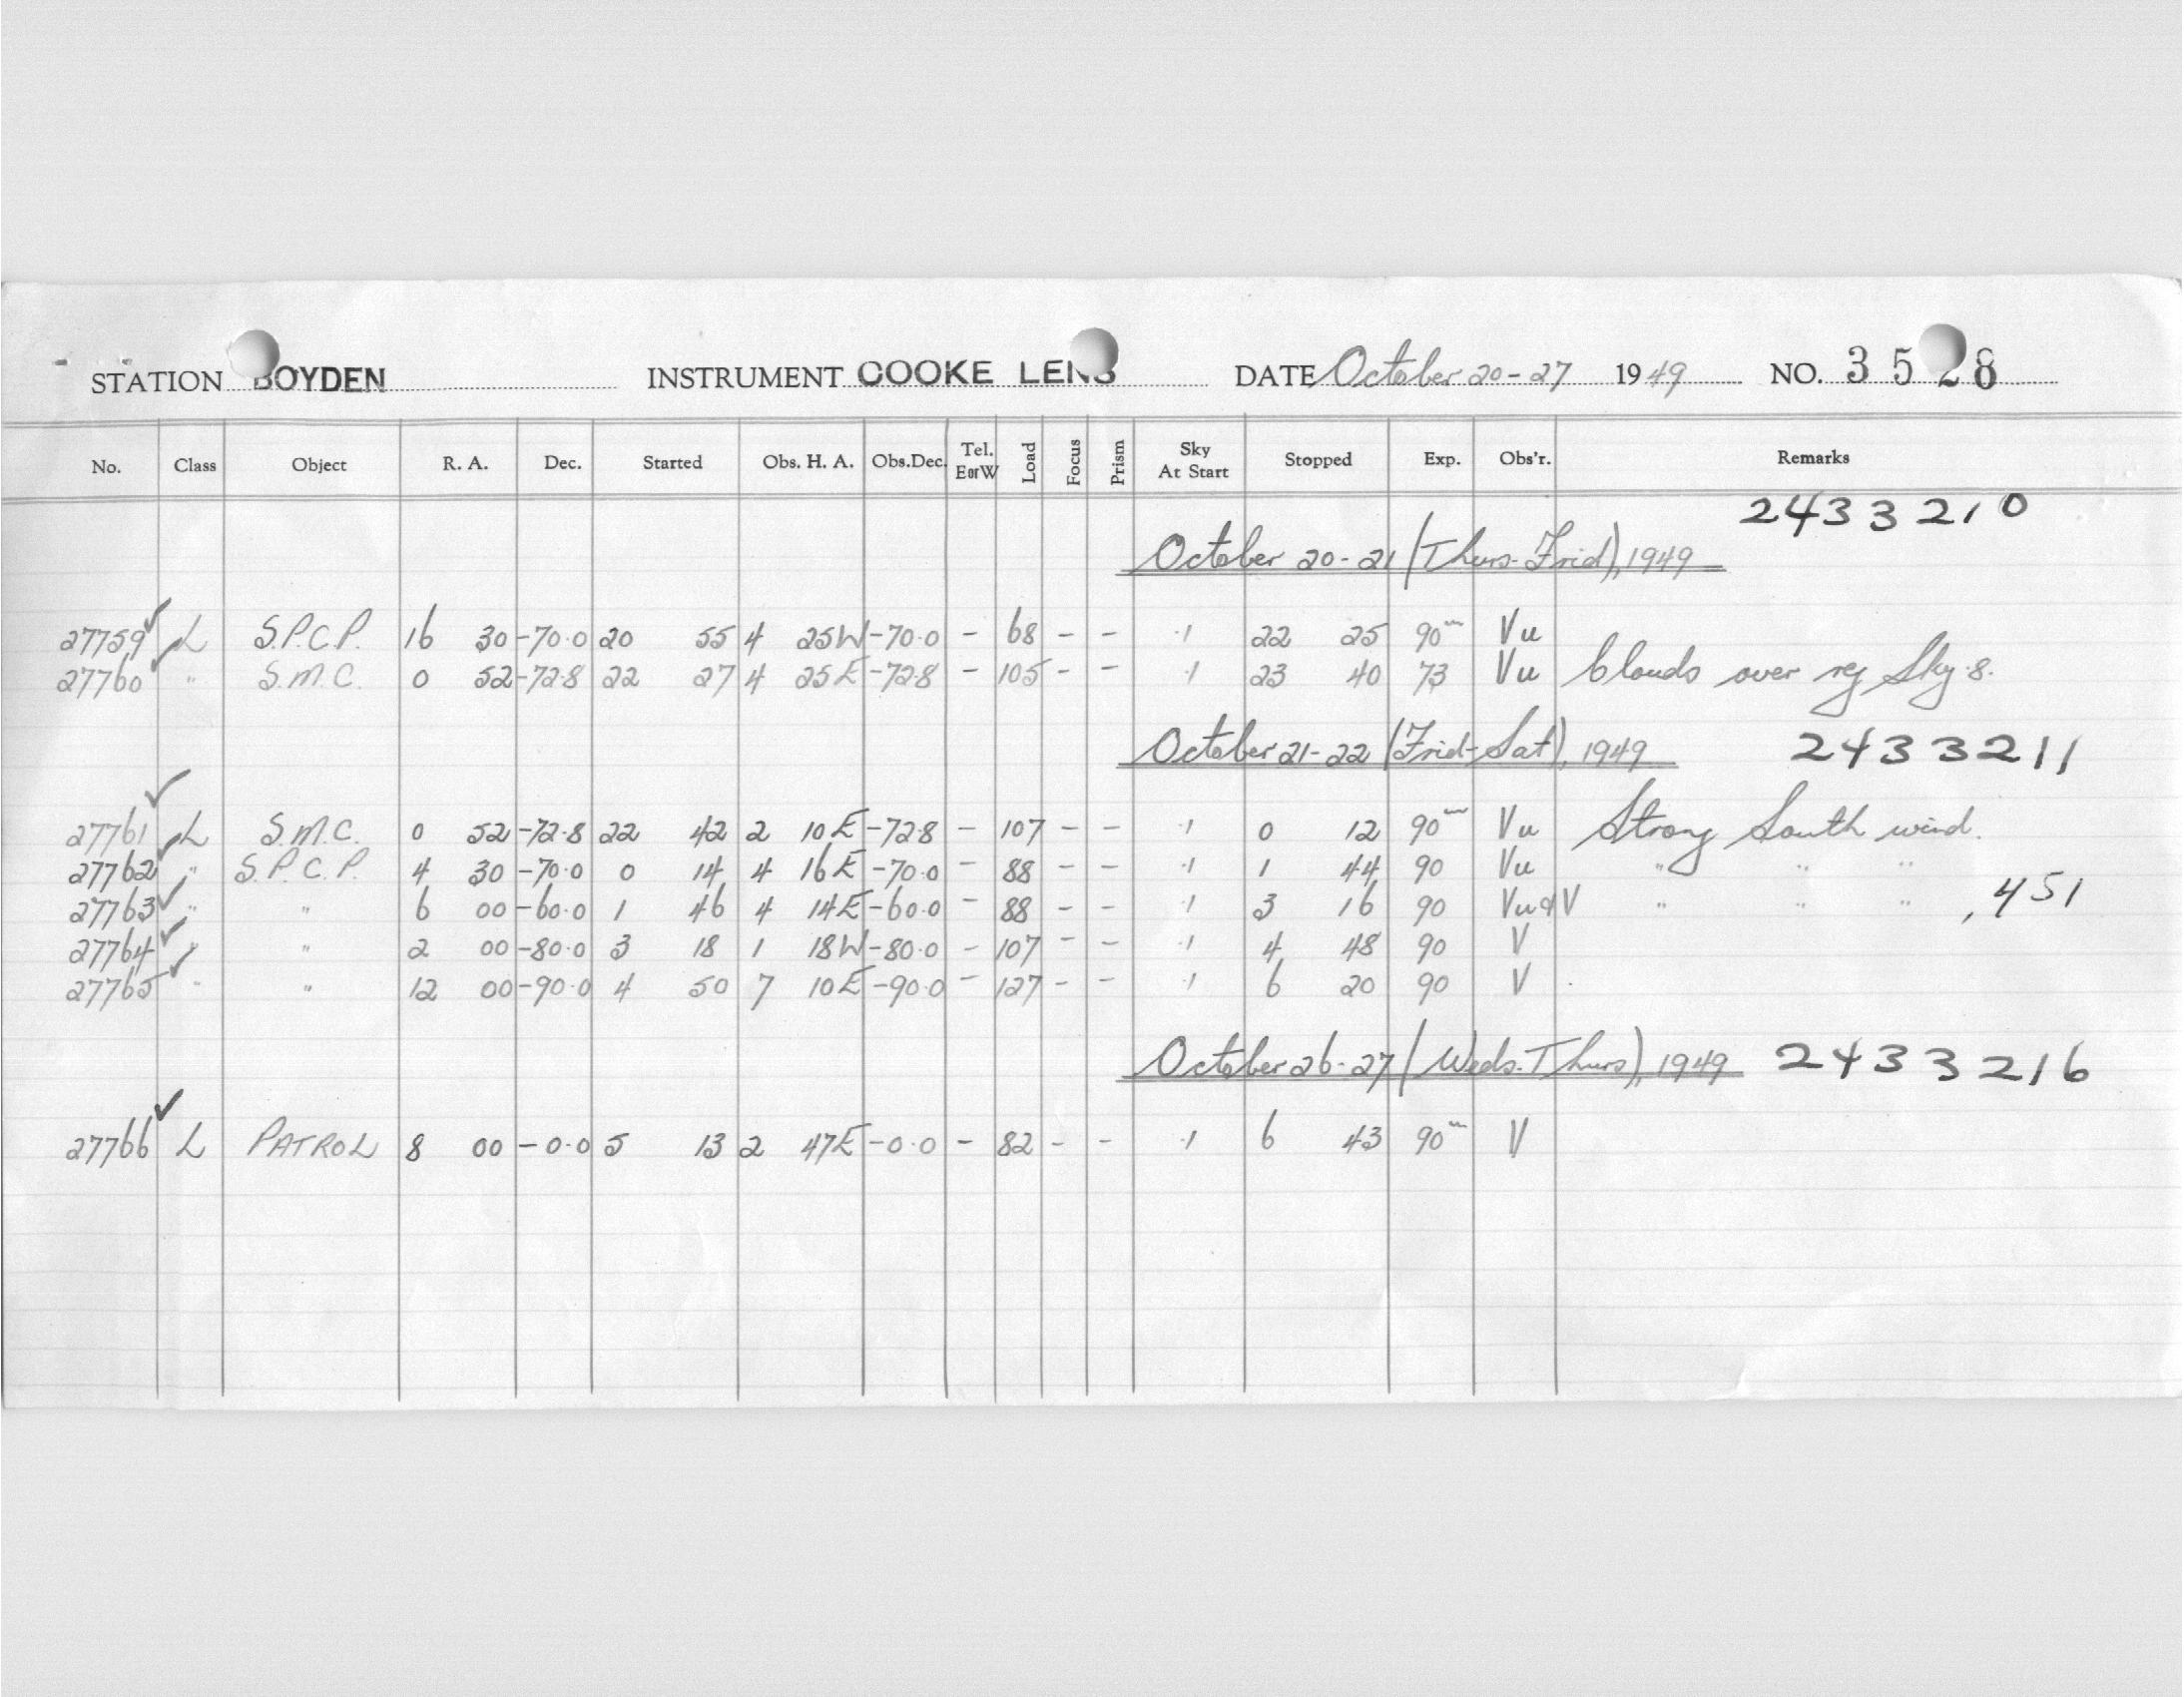 STATION BOYDEN INSTRUMENT COOKE LENS DATE October 20-27 1949 NO. 3528
No. Class Object R. A. Dec. Started Obs. H. A. Obs.Dec. Tel. E or W Load Focus Prism Sky At Start Stopped Exp. Obs'r. Remarks
2433210
October 20-21 (Thurs-Frid), 1949
27759 ✓ L S.P.C.P. 16 30 -70.0 20 55 4 25W -70.0 - 68 - - .1 22 25 90m Vu
27760 ✓ " S.M.C. 0 52 -72.8 22 27 4 25E -72.8 - 105 - - .1 23 40 73 Vu Clouds over reg Sky .8.
October 21-22 (Frid-Sat), 1949 2433211
27761 ✓ L S.M.C. 0 52 -72.8 22 42 2 10E -72.8 - 107 - - .1 0 12 90m Vu Strong South wind.
27762 ✓ " S.P.C.P. 4 30 -70.0 0 14 4 16E -70.0 - 88 - - .1 1 44 90 Vu " " "
27763 ✓ " " 6 00 -60.0 1 46 4 14E -60.0 - 88 - - .1 3 16 90 Vu&V " " " .451
27764 ✓ " " 2 00 -80.0 3 18 1 18W -80.0 - 107 - - .1 4 48 90 V
27765 ✓ " " 12 00 -90.0 4 50 7 10E -90.0 - 127 - - .1 6 20 90 V
October 26-27 (Weds-Thurs), 1949 2433216
27766 ✓ L PATROL 8 00 -0.0 5 13 2 47E -0.0 - 82 - - .1 6 43 90m V